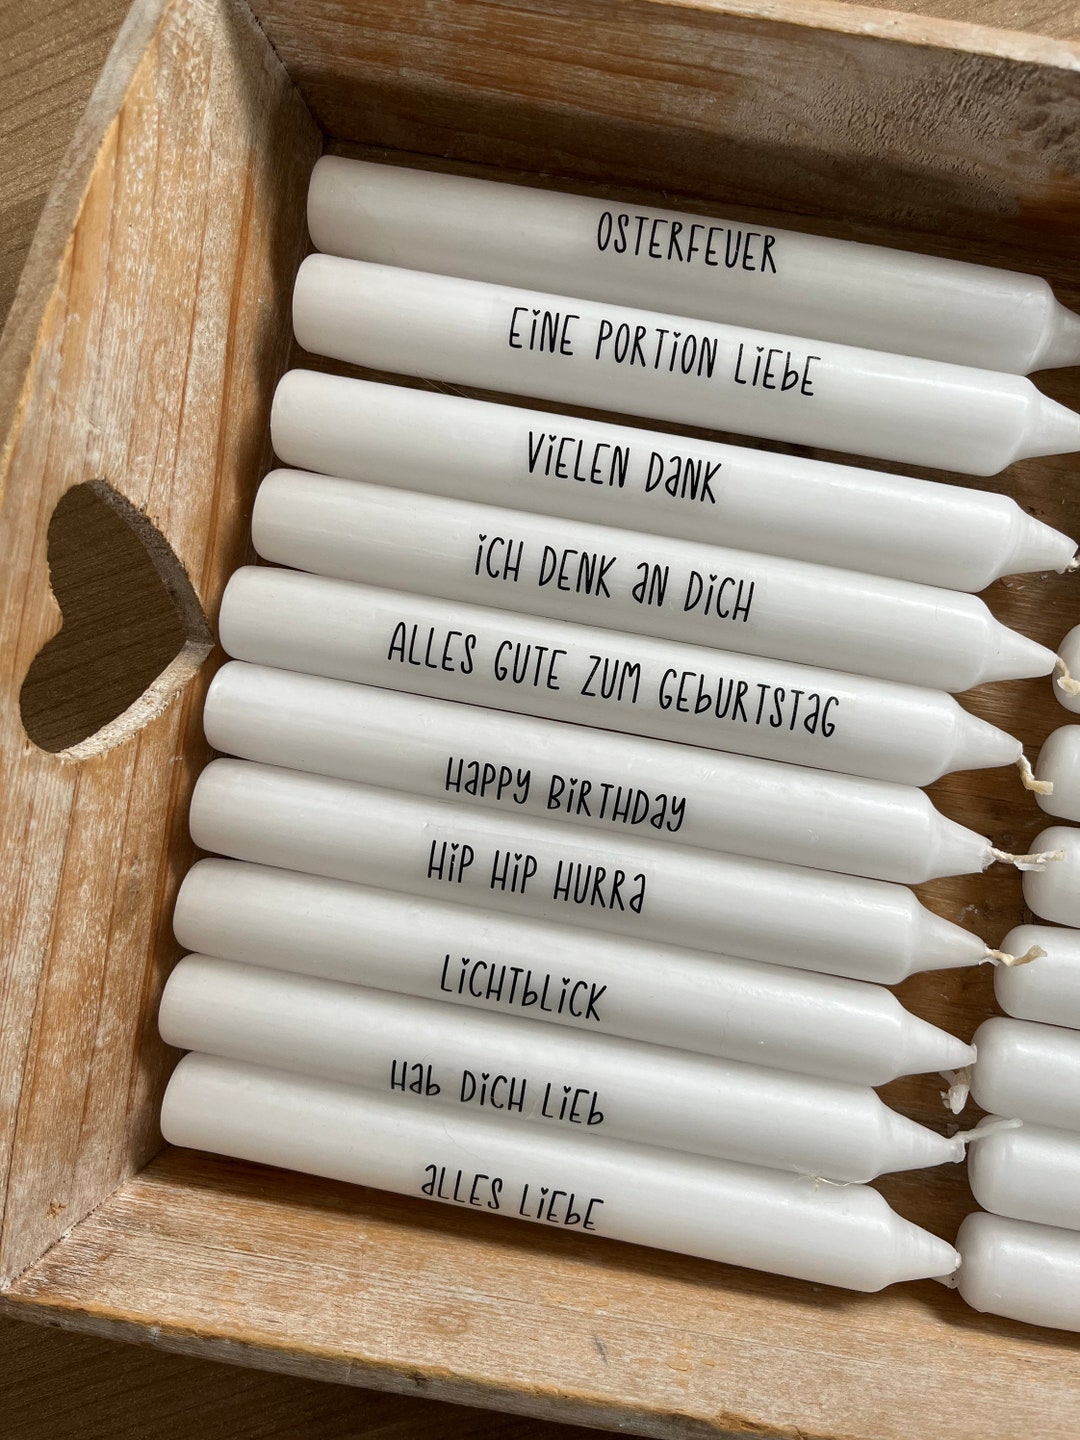 OSTERFEUER
EINE PORTION LIEBE
VIELEN DANK
ICH DENK AN DICH
ALLES GUTE ZUM GEBURTSTAG
HAPPY BIRTHDAY
HIP HIP HURRA
LICHTBLICK
HAB DICH LIEB
ALLES LIEBE